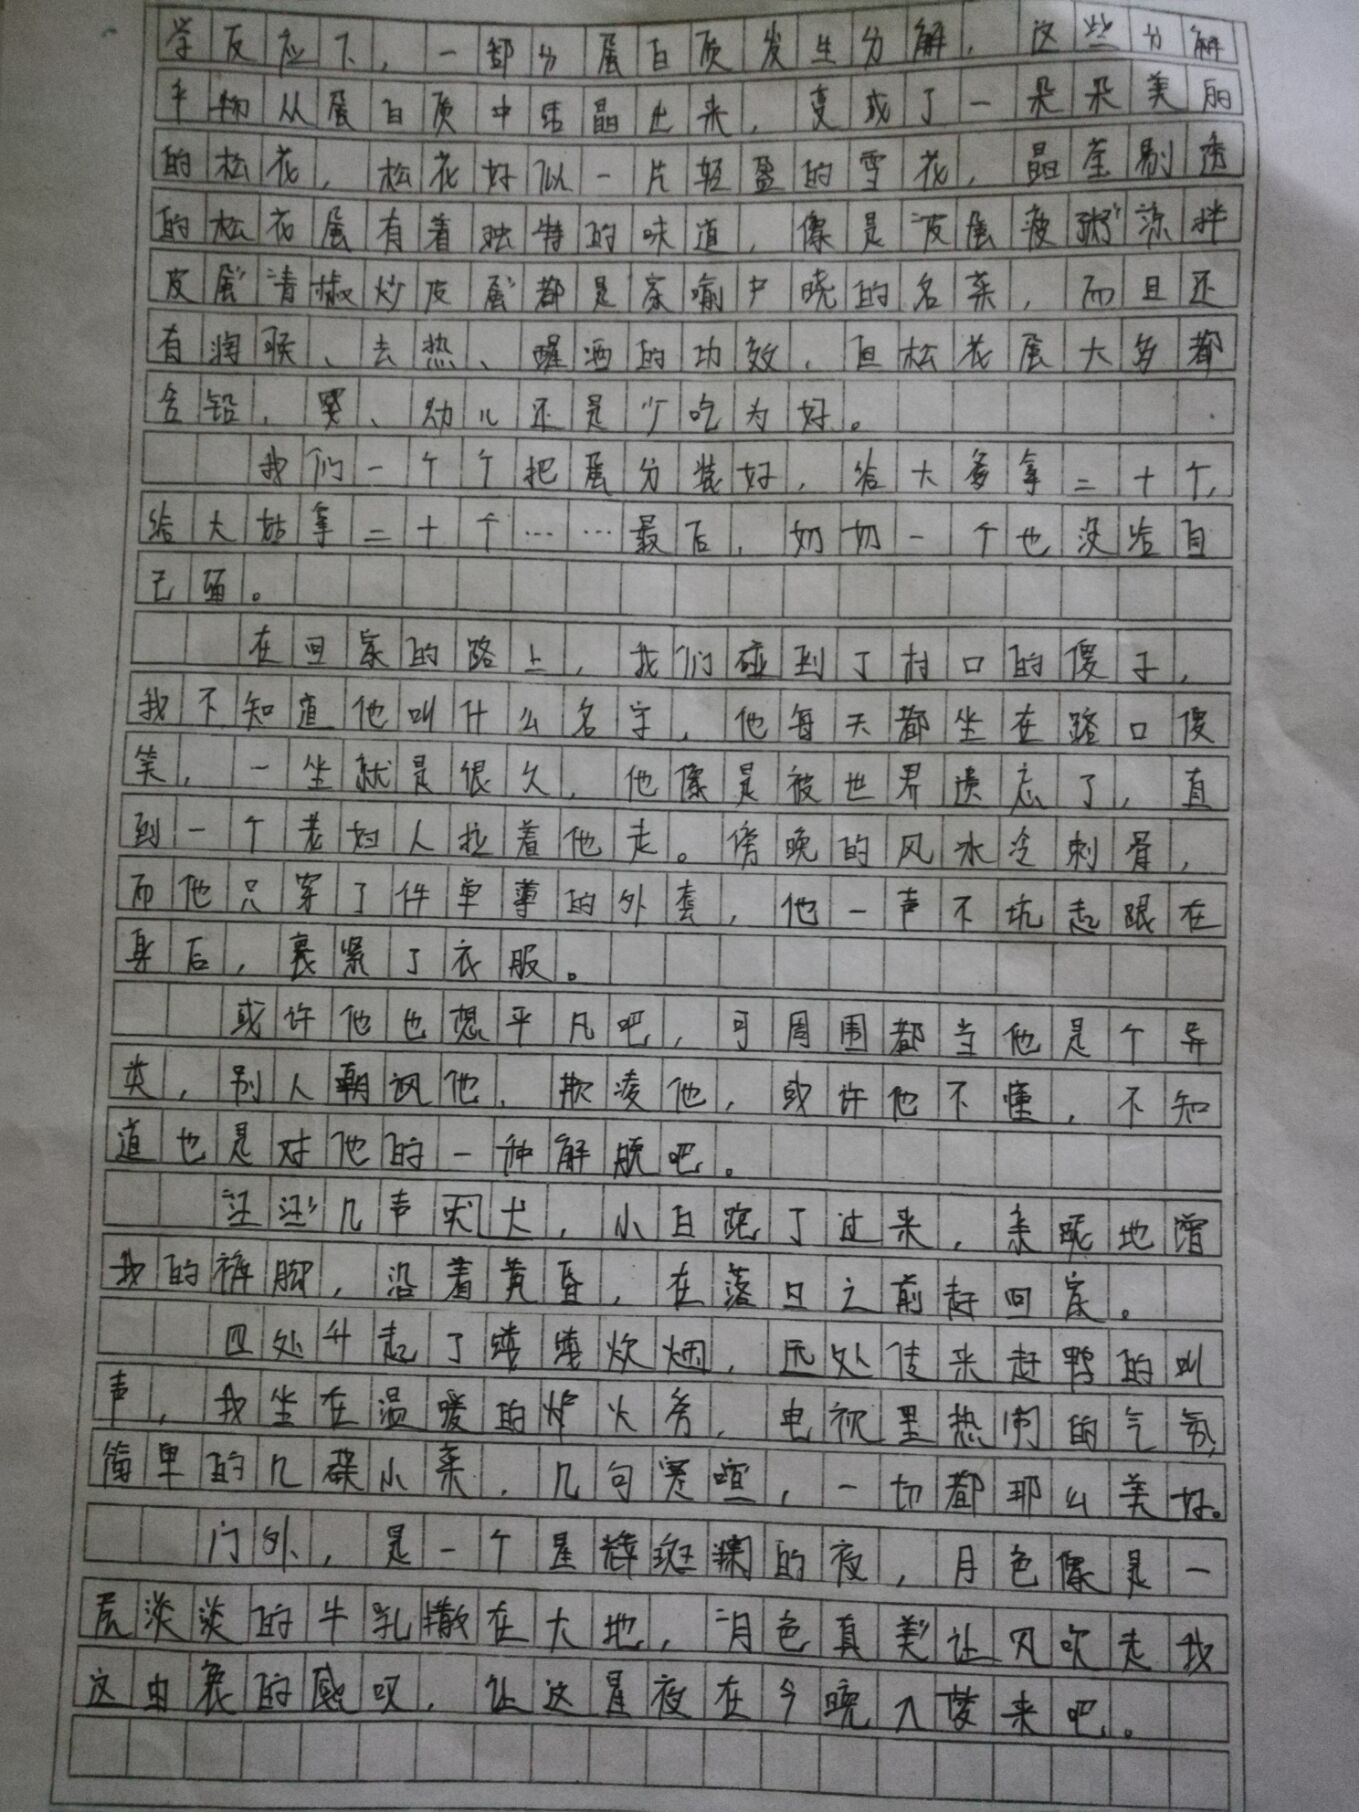 学反应下，一部分蛋白质发生分解，这些分解
平物从蛋白质中结晶出来，变成了一朵朵美丽
的松花，松花好似一片轻盈的雪花，晶莹剔透
的松花蛋有着独特的味道，像是“皮蛋瘦粥”凉拌
皮蛋”青椒炒皮蛋”都是家喻户晓的名菜，而且还
有润喉、去热、醒酒的功效，但松花蛋大多都
含铅，婴、幼儿还是少吃为好。
我们一个个把蛋分装好，给大爹拿二十个，
给大姑拿二十个……最后，奶奶一个也没给自
己留。
在回家的路上，我们碰到了村口的傻子，
我不知道他叫什么名字，他每天都坐在路口傻
笑，一坐就是很久，他像是被世界遗忘了，直
到一个老妇人拉着他走。傍晚的风冰冷刺骨，
而他只穿了件单薄的外套，他一声不坑起跟在
身后，裹紧了衣服。
或许他也想平凡吧，可周围都当他是个异
类，别人朝讽他，欺凌他，或许他不懂，不知
道也是对他的一种解脱吧。
“汪汪”几声犬犬，小白跑了过来，亲昵地蹭
我的裤脚，沿着黄昏，在落日之前赶回家。
四处升起了缕缕炊烟，远处传来赶鸭的叫
声，我坐在温暖的炉火旁，电视里热闹的气氛，
简单的几碟小菜，几句寒暄，一切都那么美好。
门外，是一个星辉斑斓的夜，月色像是一
层淡淡的牛乳撒在大地，“月色真美”让风吹走我
这由衷的感叹，让这星夜在今晚入梦来吧。